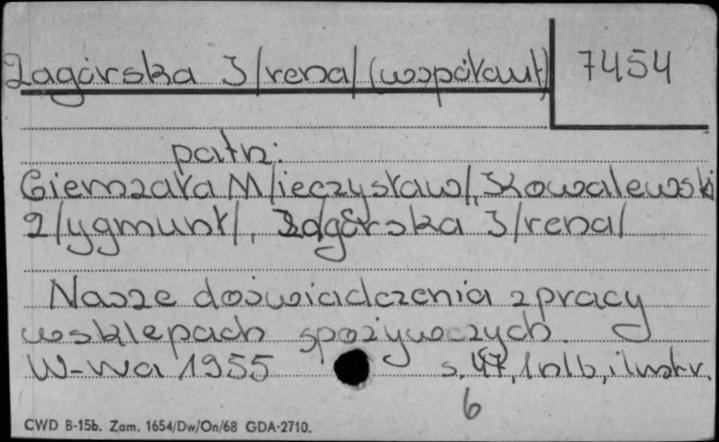 Zagórska I/rena/ (współaut) 7454
patrz:
Giemzała M/ieczysław/, Kowalewski
Z/ygmunt/, Zagórska I/rena/
Nasze doświadczenia z pracy
w sklepach spożywczych.
W-wa 1955 s. 47, 1 nlb, ilustr.
6
CWD B-15b. Zam. 1654/Dw/On/68 GDA-2710.